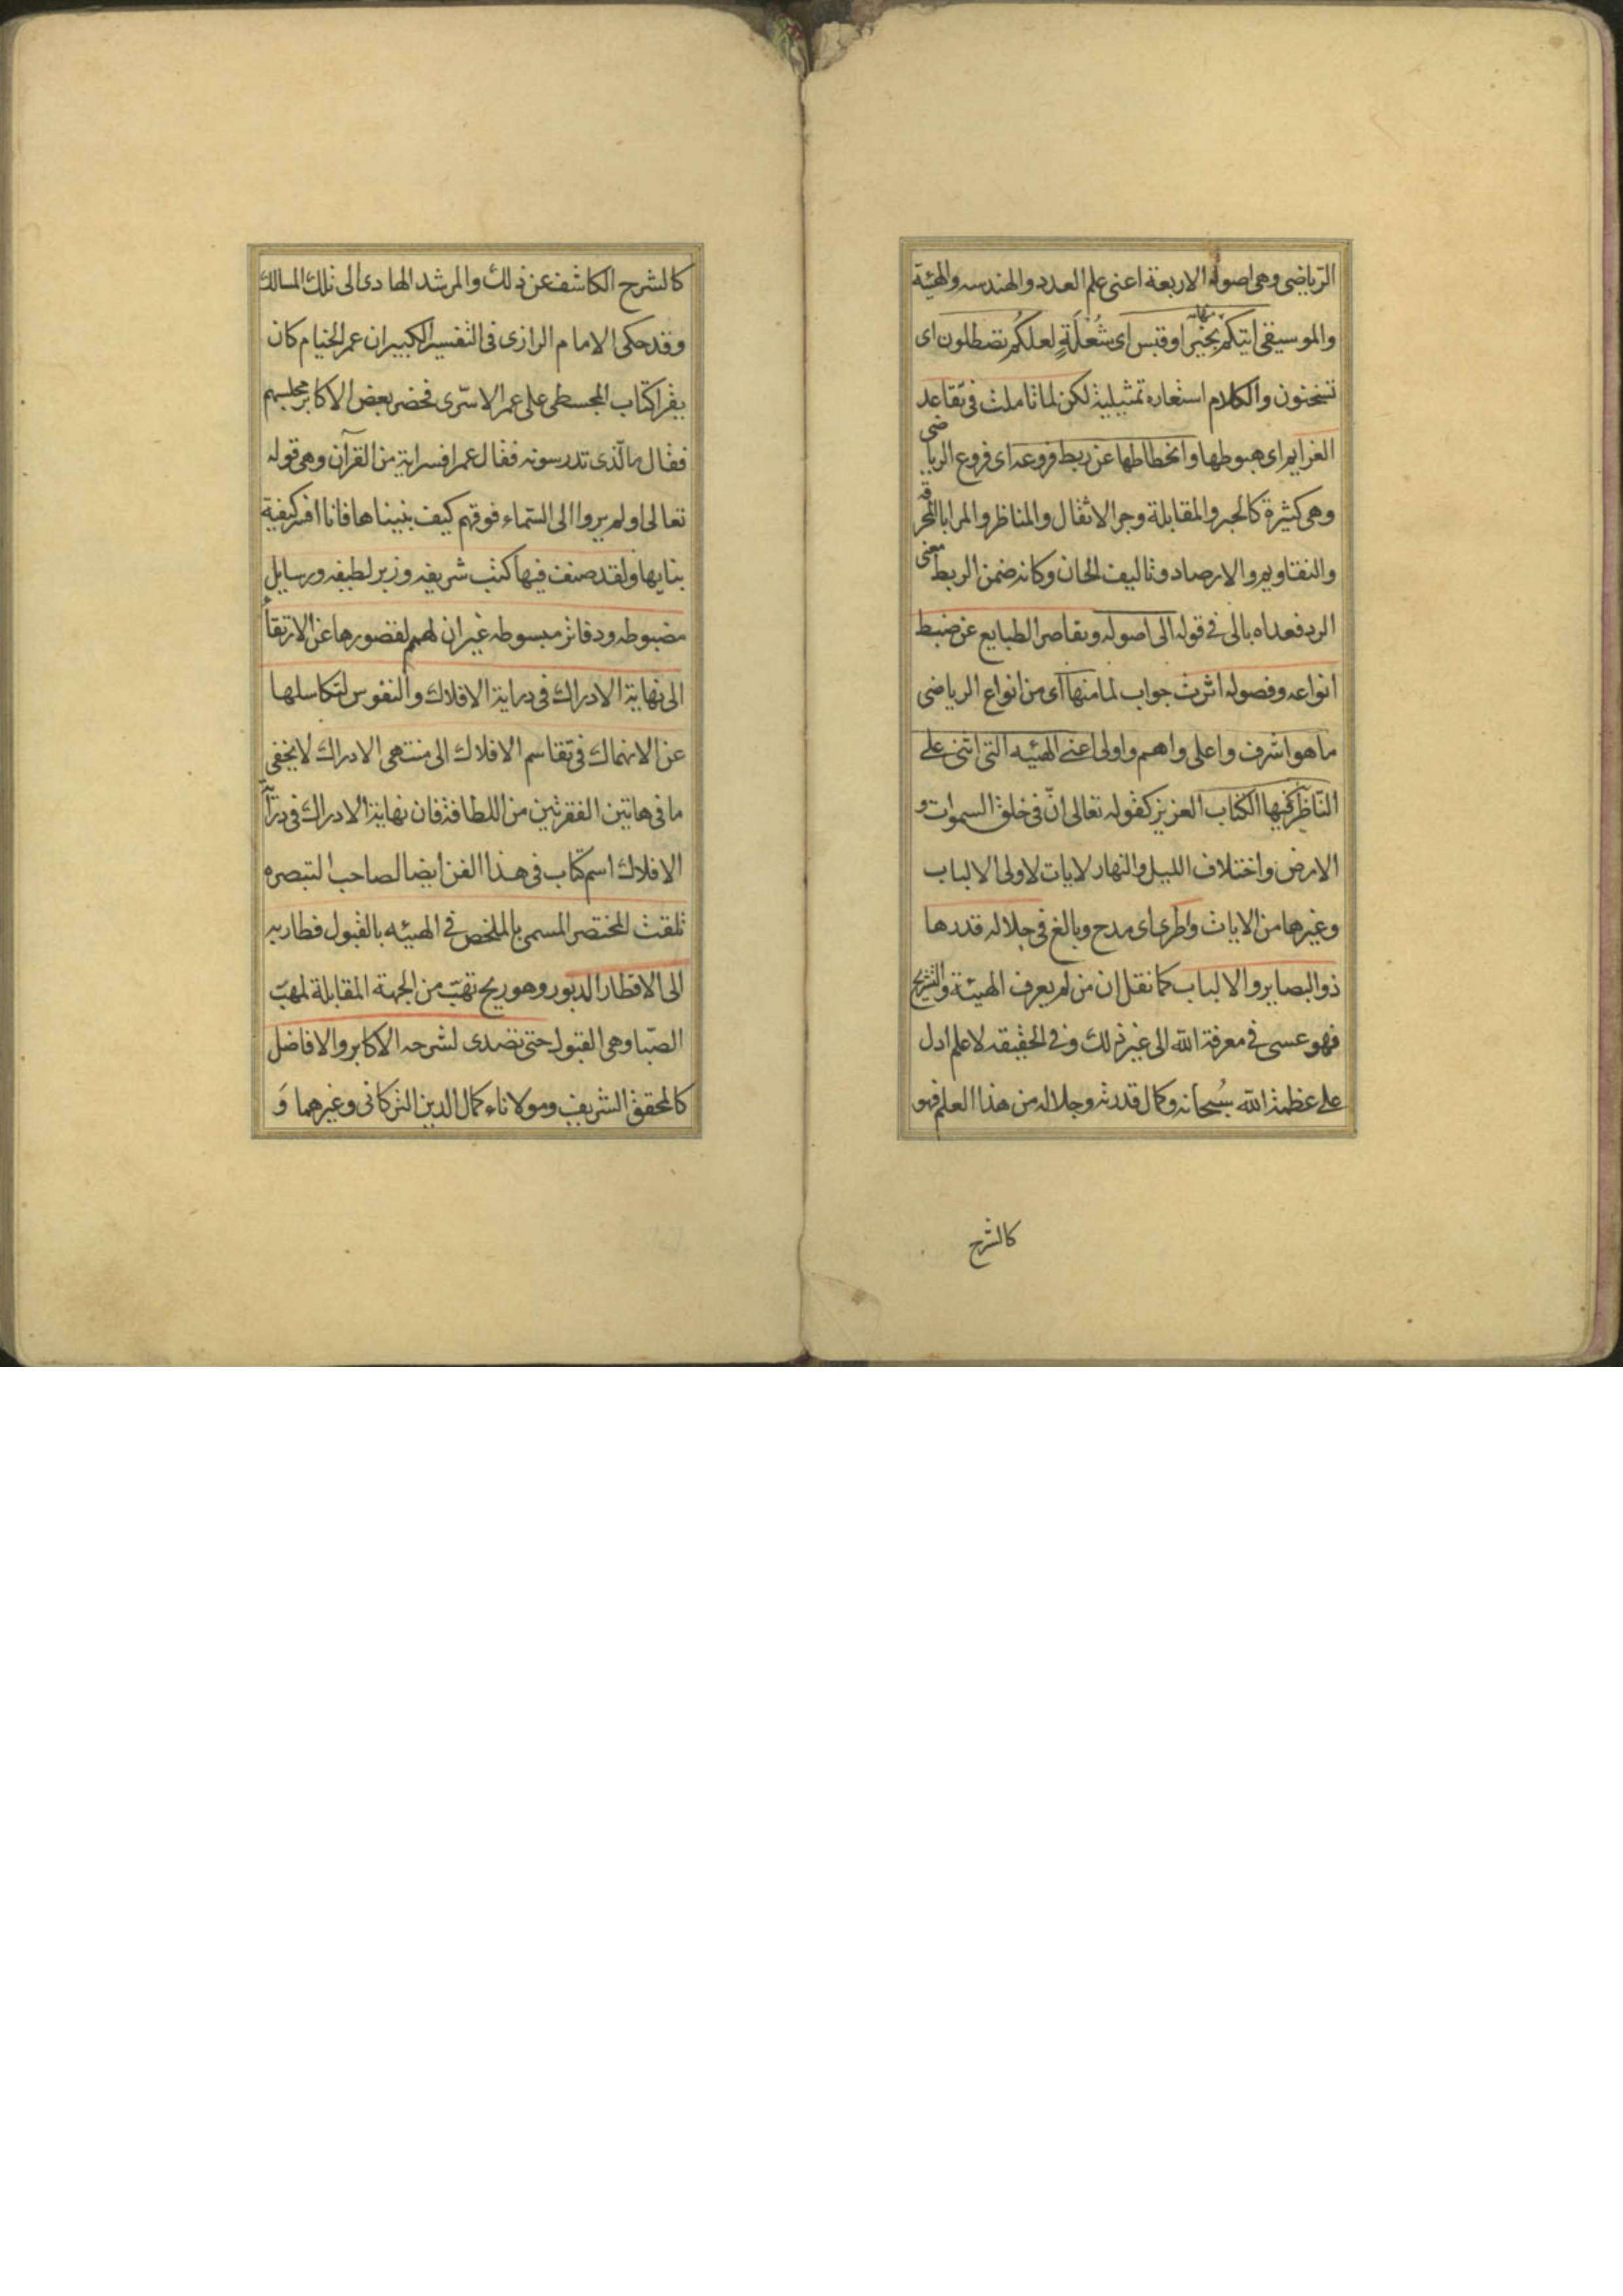 الرّياضى وهى اصوله الاربعة اعنى علم العدد والهندسه والهيئة
والموسيقى اتيكم منها بخبر او قبس اى شُعْلَةٍ لعلكُم تصطلون اى
تسخنون والكلام استعاره تمثيلية لكن لما تاملت فى تقاعد
العزايم اى هبوطها وانحطاطها عن ربط فروعه اى فروع الرياضى
وهى كثيرة كالجبر والمقابلة وجر الاثقال والمناظر والمرايا المحرقه
والتقاويم والارصاد وتاليف الحان وكانه ضمن الربط معنى
الرد فعداه بالى فى قوله الى اصوله وتقاصر الطبايع عن ضبط
انواعه وفصوله اثرت جواب لما منها اى من انواع الرياضى
ما هو اشرف واعلى واهم واولى اعنى الهيئه التى اثنى على
النّاظرين فيها الكتاب العزيز كقوله تعالى انّ فى خلق السموات و
الارض واختلاف الليل والنهار لايات لاولى الالباب
وغيرها من الايات واطرى اى مدح وبالغ فى جلاله قدرها
ذو البصاير والالباب كما نقل ان من لم يعرف الهيئة والتشريح
فهو عسى فى معرفة الله الى غير ذلك وفى الحقيقه لا علم ادل
على عظمة الله سُبحانه وكمال قدرته وجلاله من هذا العلم فهو
كالشرح
كالشرح الكاشف عن ذلك والمرشد الهادى الى تلك المسالك
وقد حكى الامام الرازى فى التفسير الكبير ان عمر الخيام كان
يقرا كتاب المجسطى على عمر الاسّرى فحضر بعض الاكابر مجلسهم
فقال ما الّذى تدرسونه فقال عمر افسر اية من القرآن وهى قوله
تعالى اولم يروا الى السّماء فوقهم كيف بنيناها فانا افسر كيفية
بنايها ولقد صنف فيها كتب شريفه وزبر لطيفه ورسايل
مضبوطه ودفاتر مبسوطه غير ان لهمم لقصورها عن الارتقاء
الى نهاية الادراك فى دراية الافلاك والنفوس لتكاسلها
عن الانهماك فى تقاسم الافلاك الى منتهى الادراك لا يخفى
ما فى هاتين الفقرتين من اللطافة فان نهاية الادراك فى دراية
الافلاك اسم كتاب فى هذا الفن ايضا لصاحب التبصره
تلقت المختصر المسمى بالملخص فى الهيئه بالقبول فطار به
الى الاقطار الدبور وهو ريح تهبّ من الجهة المقابلة لمهبّ
الصّبا وهى القبول حتى تصدى لشرحه الاكابر والافاضل
كالمحقق الشريف ومولاناء كمال الدين التركانى وغيرهما وَ